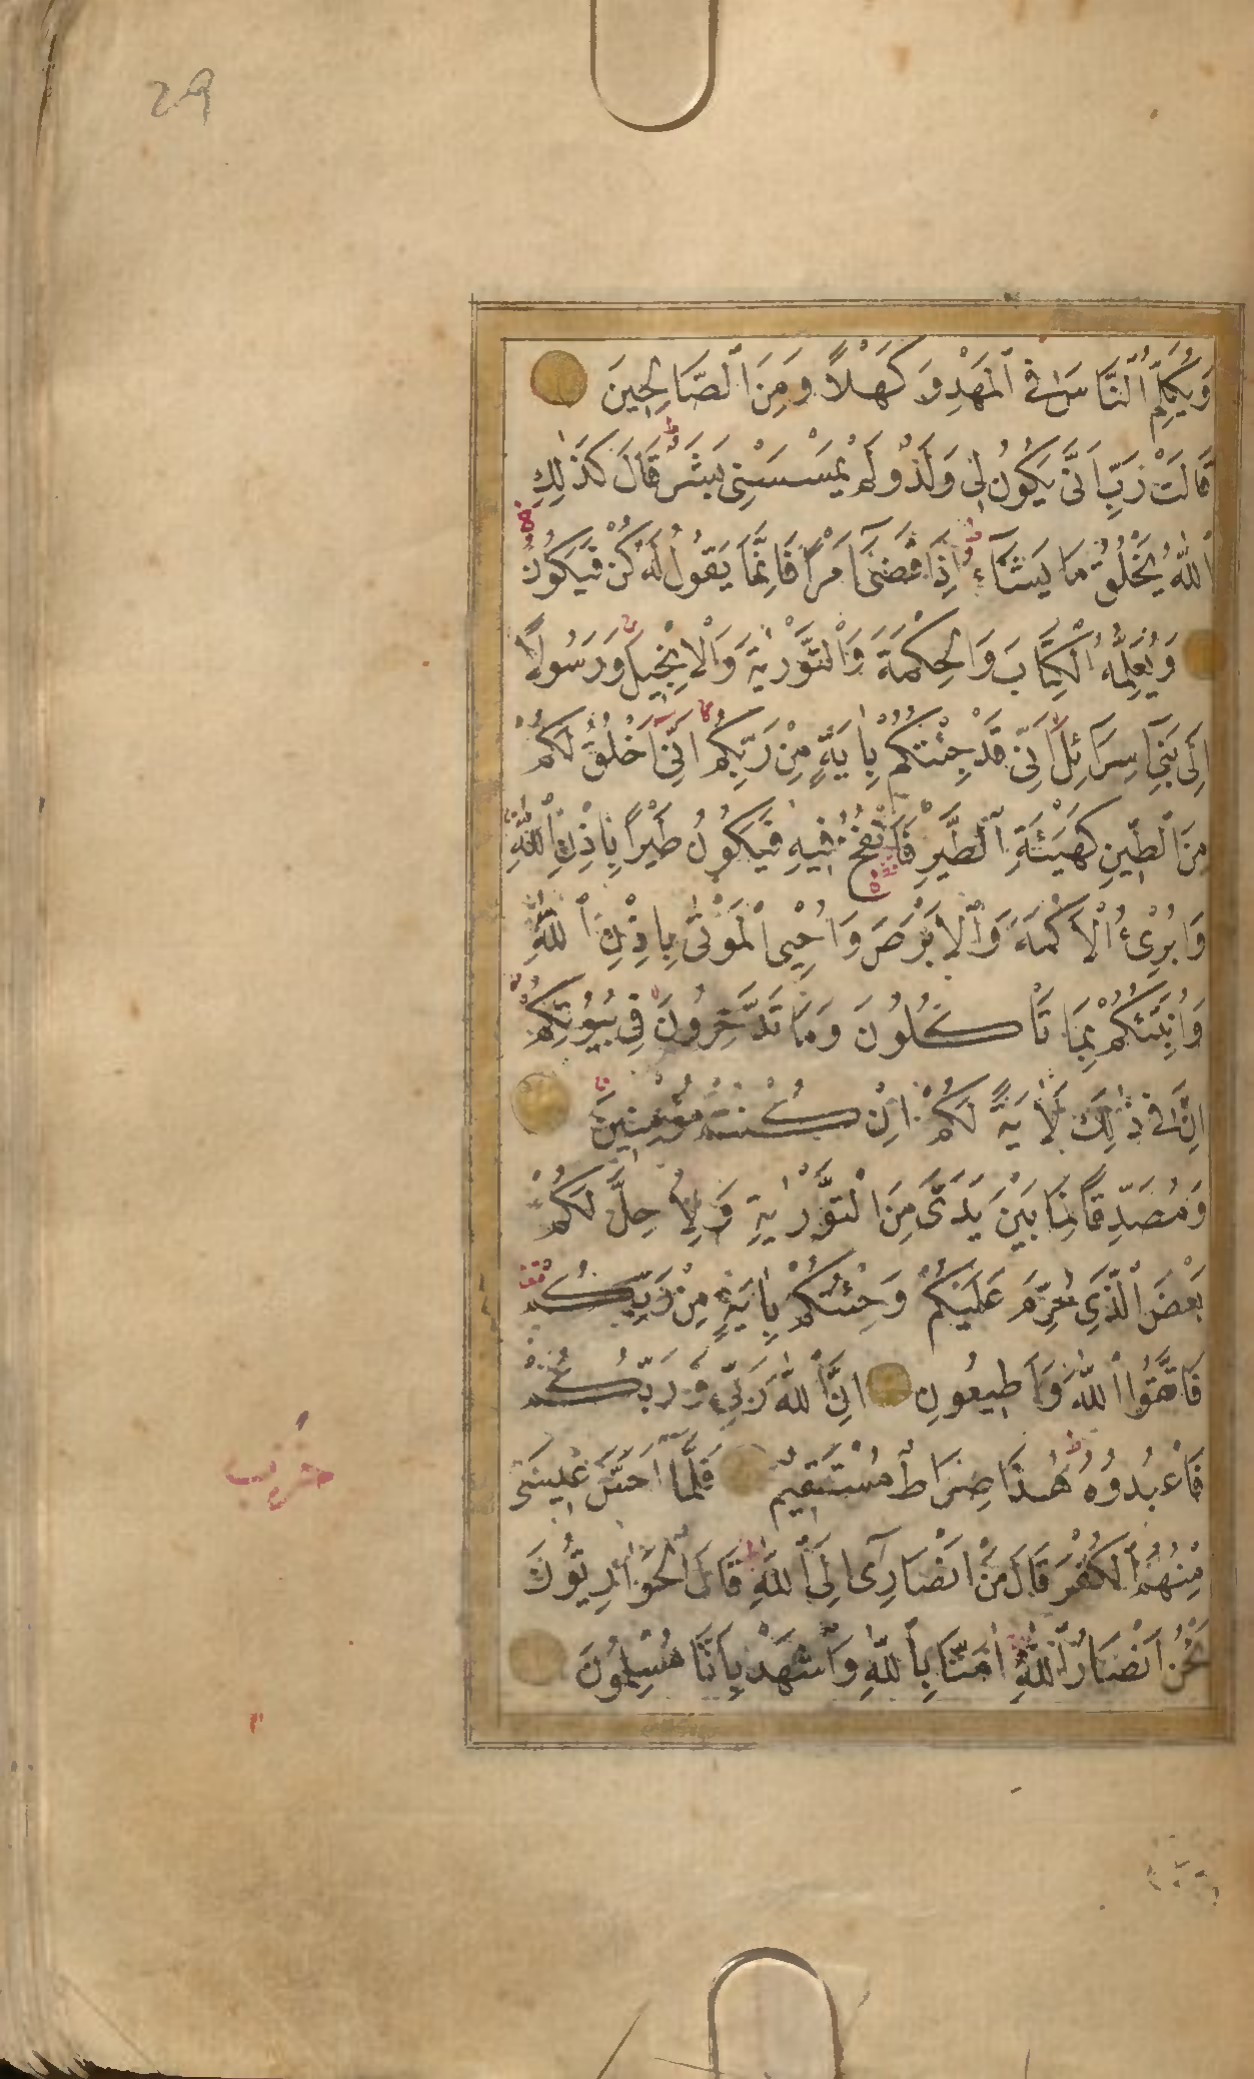 29
وَيُكَلِّمُ ٱلنَّاسَ فِى ٱلْمَهْدِ وَكَهْلًا وَمِنَ ٱلصَّالِحِينَ
قَالَتْ رَبِّ اَنّٰى يَكُونُ لِى وَلَدٌ وَلَمْ يَمْسَسْنِى بَشَرٌ ط قَالَ كَذٰلِكِ
ٱللّٰهُ يَخْلُقُ مَا يَشَآءُ ط اِذَا قَضٰٓى اَمْرًا فَاِنَّمَا يَقُولُ لَهُ كُنْ فَيَكُونُ
وَيُعَلِّمُهُ ٱلْكِتَابَ وَالْحِكْمَةَ وَٱلتَّوْرٰيةَ وَٱلْاِنْجِيلَ وَرَسُولًا
اِلٰى بَنِٓى اِسْرَٓائِلَ اَنِّى قَدْ جِئْتُكُمْ بِاٰيَةٍ مِنْ رَبِّكُمْ اَنِّٓى اَخْلُقُ لَكُمْ
مِنَ ٱلطِّينِ كَهَيْـَٔةِ ٱلطَّيْرِ فَاَنْفُخُ فِيهِ فَيَكُونُ طَيْرًا بِاِذْنِ ٱللّٰهِ
وَاُبْرِئُ ٱلْاَكْمَهَ وَٱلْاَبْرَصَ وَاُحْيِى ٱلْمَوْتٰى بِاِذْنِ ٱللّٰهِ
وَاُنَبِّئُكُمْ بِمَا تَاْكُلُونَ وَمَا تَدَّخِرُونَ فِى بُيُوتِكُمْ
اِنَّ فِى ذٰلِكَ لَاٰيَةً لَكُمْ اِنْ كُنْتُمْ مُؤْمِنِينَ
وَمُصَدِّقًا لِمَا بَيْنَ يَدَىَّ مِنَ ٱلتَّوْرٰيةِ وَلِاُحِلَّ لَكُمْ
بَعْضَ ٱلَّذِى حُرِّمَ عَلَيْكُمْ وَجِئْتُكُمْ بِاٰيَةٍ مِنْ رَبِّكُمْ
فَاتَّقُوا ٱللّٰهَ وَاَطِيعُونِ اِنَّ ٱللّٰهَ رَبِّى وَرَبُّكُمْ
فَاعْبُدُوهُ ط هٰذَا صِرَاطٌ مُسْتَقِيمٌ فَلَمَّٓا اَحَسَّ عِيسٰى
حزب
مِنْهُمُ ٱلْكُفْرَ قَالَ مَنْ اَنْصَارِٓى اِلَى ٱللّٰهِ ط قَالَ ٱلْحَوَارِيُّونَ
نَحْنُ اَنْصَارُ ٱللّٰهِ اٰمَنَّا بِٱللّٰهِ وَٱشْهَدْ بِاَنَّا مُسْلِمُونَ